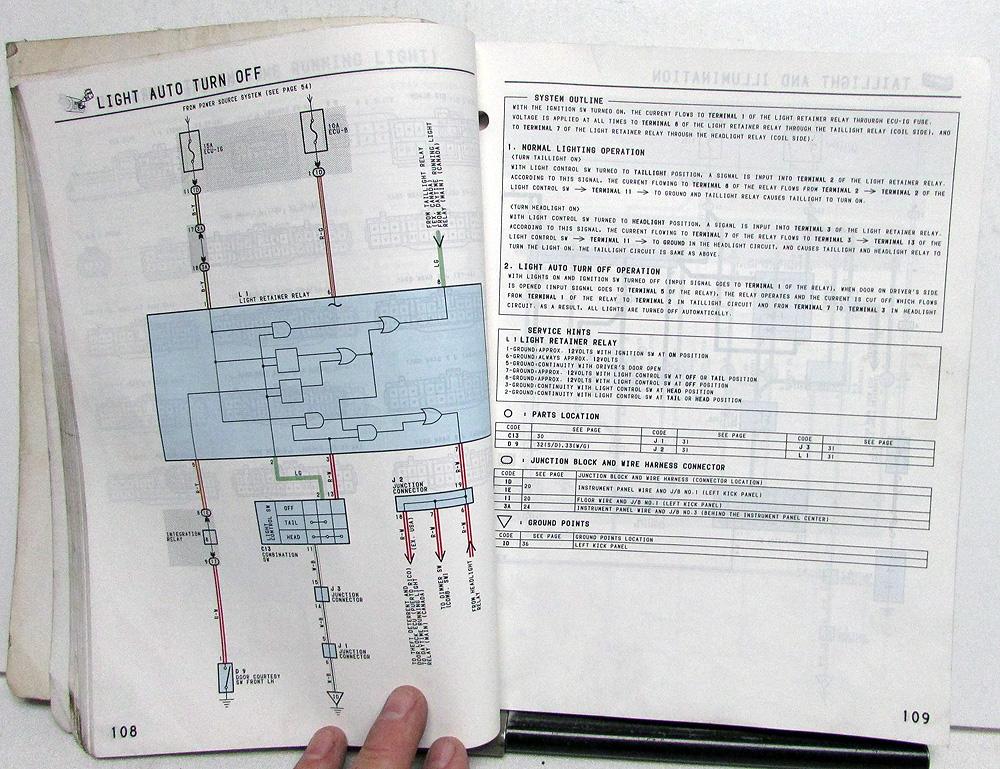 LIGHT AUTO TURN OFF
FROM POWER SOURCE SYSTEM (SEE PAGE 54)
15A
ECU-IG
10A
ECU-B
FROM TAILLIGHT RELAY
(EX. CANADA)
FROM DAYTIME RUNNING LIGHT
RELAY (MAIN) (CANADA)
LG
R-G
L 1
LIGHT RETAINER RELAY
LG
R-W
R-W
LIGHT
CONTROL SW
OFF
TAIL
HEAD
C13
COMBINATION
SW
J 2
JUNCTION
CONNECTOR
INTEGRATION
RELAY
R-W
(EX. USA)
R-W
R-W
W-B
J 3
JUNCTION
CONNECTOR
W-B
J 1
JUNCTION
CONNECTOR
W-B
TO THEFT DETERRENT AND
DOOR LOCK ECU (PUERTO RICO)
TO DAYTIME RUNNING LIGHT
RELAY (MAIN) (CANADA)
TO DIMMER SW
(COMB. SW)
FROM HEADLIGHT
RELAY
D 9
DOOR COURTESY
SW FRONT LH
108
SYSTEM OUTLINE
WITH THE IGNITION SW TURNED ON, THE CURRENT FLOWS TO TERMINAL 1 OF THE LIGHT RETAINER RELAY THROURGH ECU-IG FUSE.
VOLTAGE IS APPLIED AT ALL TIMES TO TERMINAL 8 OF THE LIGHT RETAINER RELAY THROUGH THE TAILLIGHT RELAY (COIL SIDE), AND
TO TERMINAL 7 OF THE LIGHT RETAINER RELAY THROUGH THE HEADLIGHT RELAY (COIL SIDE).
1. NORMAL LIGHTING OPERATION
(TURN TAILLIGHT ON)
WITH LIGHT CONTROL SW TURNED TO TAILLIGHT POSITION, A SIGNAL IS INPUT INTO TERMINAL 2 OF THE LIGHT RETAINER RELAY.
ACCORDING TO THIS SIGNAL, THE CURRENT FLOWING TO TERMINAL 8 OF THE RELAY FLOWS FROM TERMINAL 2 → TERMINAL 2 OF THE
LIGHT CONTROL SW → TERMINAL 11 → TO GROUND AND TAILLIGHT RELAY CAUSES TAILLIGHT TO TURN ON.
(TURN HEADLIGHT ON)
WITH LIGHT CONTROL SW TURNED TO HEADLIGHT POSITION, A SIGANL IS INPUT INTO TERMINAL 3 OF THE LIGHT RETAINER RELAY.
ACCORDING TO THIS SIGNAL, THE CURRENT FLOWING TO TERMINAL 7 OF THE RELAY FLOWS TO TERMINAL 3 → TERMINAL 13 OF THE
LIGHT CONTROL SW → TERMINAL 11 → TO GROUND IN THE HEADLIGHT CIRCUIT, AND CAUSES TAILLIGHT AND HEADLIGHT RELAY TO
TURN THE LIGHT ON. THE TAILLIGHT CIRCUIT IS SAME AS ABOVE.
2. LIGHT AUTO TURN OFF OPERATION
WITH LIGHTS ON AND IGNITION SW TURNED OFF (INPUT SIGNAL GOES TO TERMINAL 1 OF THE RELAY), WHEN DOOR ON DRIVER'S SIDE
IS OPENED (INPUT SIGNAL GOES TO TERMINAL 5 OF THE RELAY), THE RELAY OPERATES AND THE CURRENT IS CUT OFF WHICH FLOWS
FROM TERMINAL 1 OF THE RELAY TO TERMINAL 2 IN TAILLIGHT CIRCUIT AND FROM TERMINAL 7 TO TERMINAL 3 IN HEADLIGHT
CIRCUIT. AS A RESULT, ALL LIGHTS ARE TURNED OFF AUTOMATICALLY.
SERVICE HINTS
L 1 LIGHT RETAINER RELAY
1-GROUND:APPROX. 12VOLTS WITH IGNITION SW AT ON POSITION
6-GROUND:ALWAYS APPROX. 12VOLTS
5-GROUND:CONTINUITY WITH DRIVER'S DOOR OPEN
7-GROUND:APPROX. 12VOLTS WITH LIGHT CONTROL SW AT OFF OR TAIL POSITION
8-GROUND:APPROX. 12VOLTS WITH LIGHT CONTROL SW AT OFF POSITION
3-GROUND:CONTINUITY WITH LIGHT CONTROL SW AT HEAD POSITION
2-GROUND:CONTINUITY WITH LIGHT CONTROL SW AT TAIL OR HEAD POSITION
: PARTS LOCATION
CODE SEE PAGE CODE SEE PAGE CODE SEE PAGE
C13 30 J 1 31 J 3 31
D 9 32(S/D),33(W/G) J 2 31 L 1 31
: JUNCTION BLOCK AND WIRE HARNESS CONNECTOR
CODE SEE PAGE JUNCTION BLOCK AND WIRE HARNESS (CONNECTOR LOCATION)
1D
1E 20 INSTRUMENT PANEL WIRE AND J/B NO.1 (LEFT KICK PANEL)
1I 20 FLOOR WIRE AND J/B NO.1 (LEFT KICK PANEL)
3A 24 INSTRUMENT PANEL WIRE AND J/B NO.3 (BEHIND THE INSTRUMENT PANEL CENTER)
: GROUND POINTS
CODE SEE PAGE GROUND POINTS LOCATION
ID 36 LEFT KICK PANEL
109